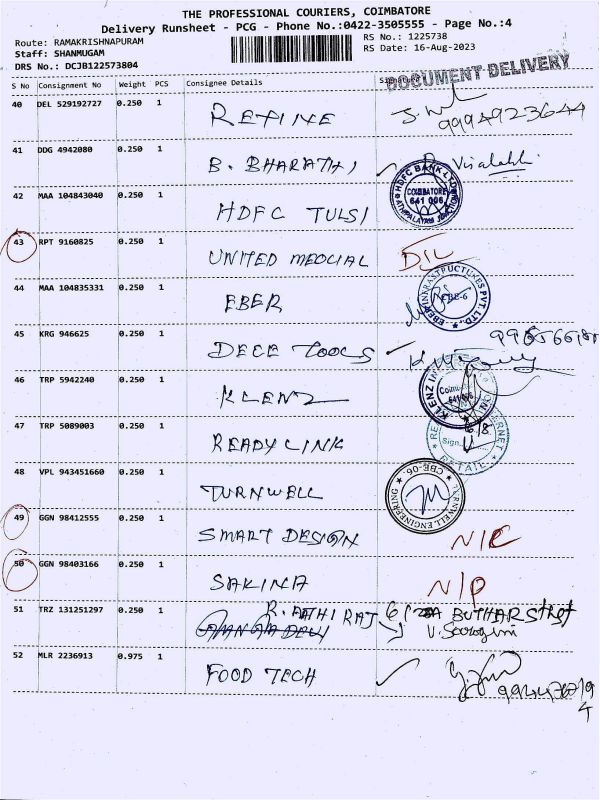 THE PROFESSIONAL COURIERS, COIMBATORE
Delivery Runsheet - PCG - Phone No.:0422-3505555 - Page No.:4
Route: RAMAKRISHNAPURAM RS No.: 1225738
Staff: SHANMUGAM RS Date: 16-Aug-2023
DRS No.: DCJB122573804
DOCUMENT DELIVERY
S No Consignment No Weight PCS Consignee Details
40 DEL 529192727 0.250 1 REFINE 9994923644
41 DDG 4942080 0.250 1 B. BHARATHI Visalakshi
42 MAA 104843040 0.250 1 HDFC TULSI HDFC BANK LTD COIMBATORE 641 006
43 RPT 9160825 0.250 1 UNITED MEDCIAL D/L
44 MAA 104835331 0.250 1 EBER EBER INFRASTRUCTURES PVT. LTD. CBE-6
45 KRG 946625 0.250 1 DECE TOOLS
46 TRP 5942240 0.250 1 KLENZ KLENZ
47 TRP 5089003 0.250 1 READY LINK Sign. RETAIL
48 VPL 943451660 0.250 1 TURNWELL TURNWELL ENGINEERING CBE-06.
49 GGN 98412555 0.250 1 SMART DESIGN N/C
50 GGN 98403166 0.250 1 SAKINA N/P
51 TRZ 131251297 0.250 1 R. AATHI RAJ
52 MLR 2236913 0.975 1 FOOD TECH